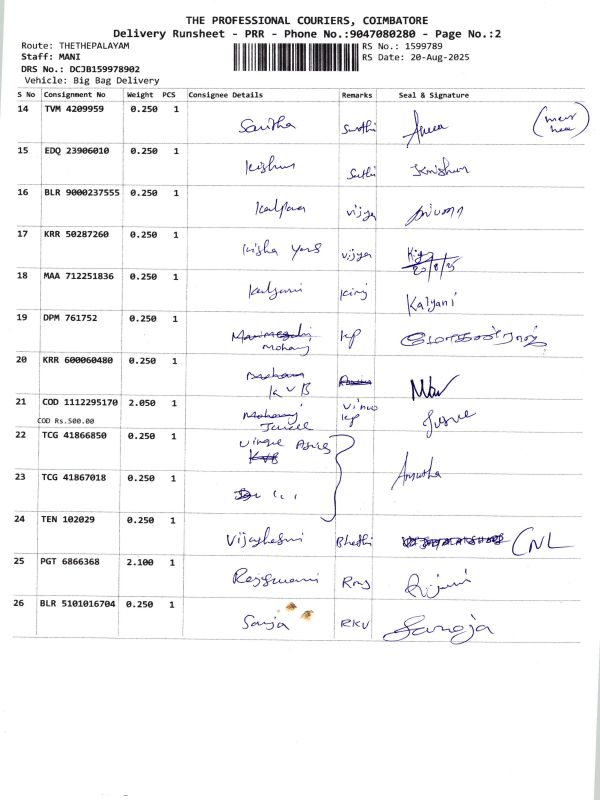 THE PROFESSIONAL COURIERS, COIMBATORE
Delivery Runsheet - PRR - Phone No.:9047080280 - Page No.:2
Route: THETHEPALAYAM RS No.: 1599789
Staff: MANI RS Date: 20-Aug-2025
DRS No.: DCJB159978902
Vehicle: Big Bag Delivery
S No Consignment No Weight PCS Consignee Details Remarks Seal & Signature
14 TVM 4209959 0.250 1
15 EDQ 23906010 0.250 1 Kishur
16 BLR 9000237555 0.250 1 Kalpaa vijya
17 KRR 50287260 0.250 1 vijya
20/8/25
18 MAA 712251836 0.250 1 Kalyani King Kalyani
19 DPM 761752 0.250 1 KP
Mohanj
20 KRR 600060480 0.250 1
KVB
21 COD 1112295170 2.050 1 Mohanj KP
COD Rs.500.00
22 TCG 41866850 0.250 1
KVB
23 TCG 41867018 0.250 1 Anusha
24 TEN 102029 0.250 1 CNL
25 PGT 6866368 2.100 1
26 BLR 5101016704 0.250 1 Saroja RKV Saroja